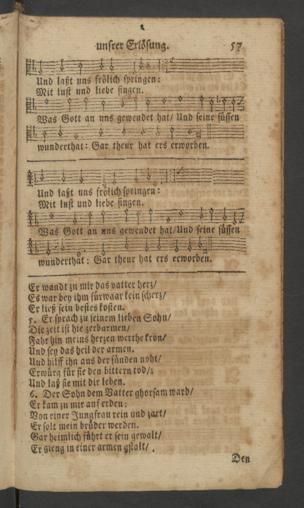 unsrer Erlösung. 57
Und laßt uns frölich springen:
Mit lust und liebe singen.
Was Gott an uns gewendet hat/ Und seine süssen
wunderthat: Gar theur hat ers erworben.
Und laßt uns frölich springen:
Mit lust und liebe singen.
Was Gott an uns gewendet hat/ Und seine süssen
wunderthat: Gar theur hat ers erworben.
Er wandt zu mir das vatter hertz/
Es war bey ihm fürwaar kein schertz/
Er ließ sein bestes kosten.
5. Er sprach zu seinem lieben Sohn/
Die zeit ist hie zerbarmen/
Fahr hin meins hertzen werthe krön/
Und sey das heil der armen.
Und hilff ihn aus der sünden noht/
Erwürg für sie den bittern tod/
Und laß sie mit dir leben.
6. Der Sohn dem Vatter ghorsam ward/
Er kam zu mir auf erden:
Von einer Jungfrau rein und zart/
Er solt mein brüder werden.
Gar heimlich führt er sein gewalt/
Er gieng in einer armen gstalt/
Den